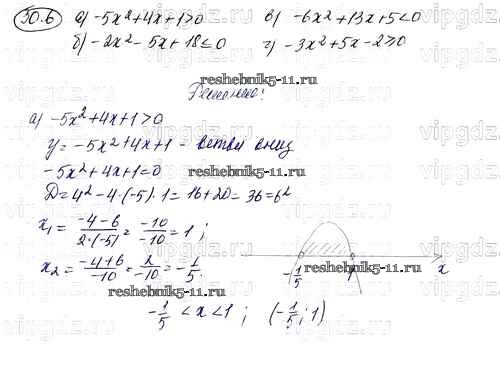 30.6 а) -5x²+4x+1>0 в) -6x²+13x+5<0
б) -2x²-5x+18≤0 г) -3x²+5x-2≥0
reshebnik5-11.ru
Решение:
а) -5x²+4x+1>0
y=-5x²+4x+1 - ветви вниз
-5x²+4x+1=0
reshebnik5-11.ru
D=4²-4·(-5)·1=16+20=36=6²
x₁ = (-4-6)/(2·(-5)) = (-10)/(-10) = 1;
x₂ = (-4+6)/(-10) = 2/(-10) = -1/5.
-1/5 1 x
reshebnik5-11.ru
-1/5 < x < 1; (-1/5; 1)
reshebnik5-11.ru
vipgdz.ru